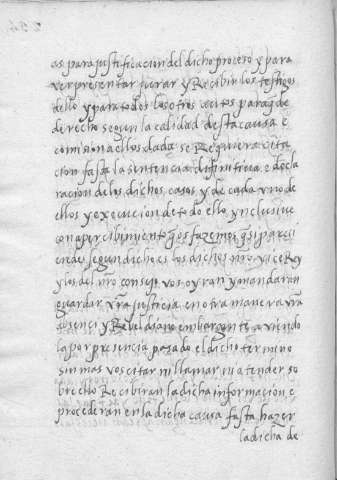 as parajustificacion del dicho proceso y para
ver presentar jurar y Recibir los testigos
dello y para todos los otros avctos para q̃ de
derecho segun la calidad desta causa e
comision a ellos dada se Requiera cita
cion fasta la sentencia difinitiva e decla
racion de los dichos casos y de cada vno de
ellos y execucion de todo ello ynclusive
con apercibimiento q̃ os fazemos q̃ si pareci
endes segun dicho es los dichos nr̃o visoRey
y los del nr̃o consejo vos oyran y mandaran
guardar vr̃a justicia en otra manera vr̃a
absencia y Rebeldia no embargante aviendo
la por presencia pasado el dicho termino
sin mas vos citar ni llamar ni atender so
brello Recibiran la dicha informacion e
procederan en la dicha causa fasta hazer
la dicha de